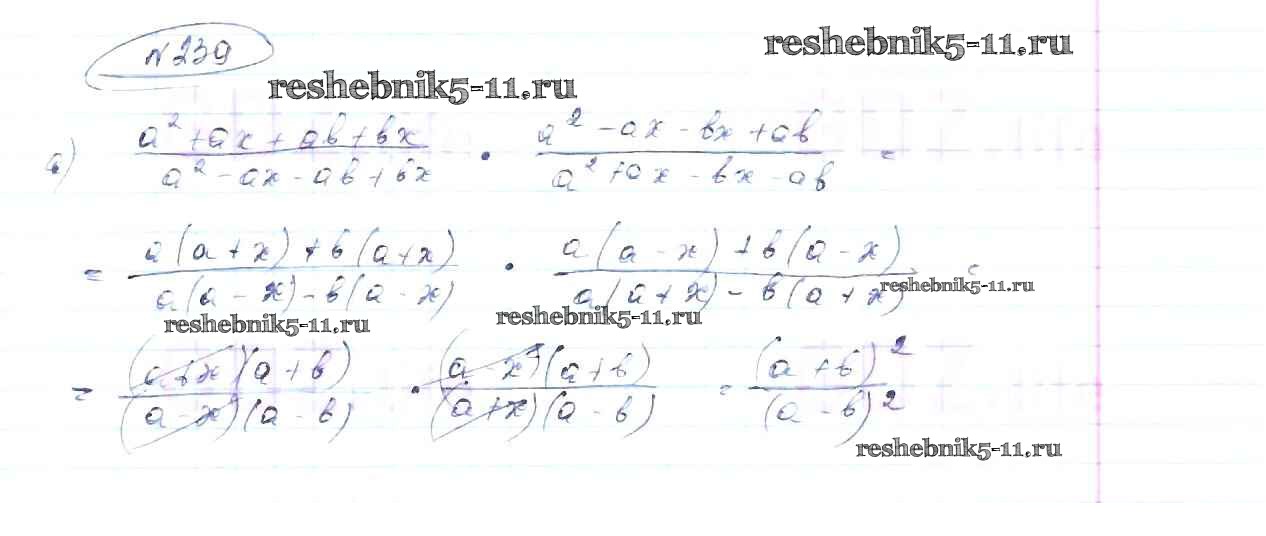 №239
reshebnik5-11.ru
reshebnik5-11.ru
а) (a² + ax + ab + bx)/(a² - ax - ab + bx) · (a² - ax - bx + ab)/(a² + ax - bx - ab) =
= (a(a + x) + b(a + x))/(a(a - x) - b(a - x)) · (a(a - x) + b(a - x))/(a(a + x) - b(a + x)) =
reshebnik5-11.ru
reshebnik5-11.ru
reshebnik5-11.ru
= ((a + x)(a + b))/((a - x)(a - b)) · ((a - x)(a + b))/((a + x)(a - b)) = (a + b)²/(a - b)²
reshebnik5-11.ru